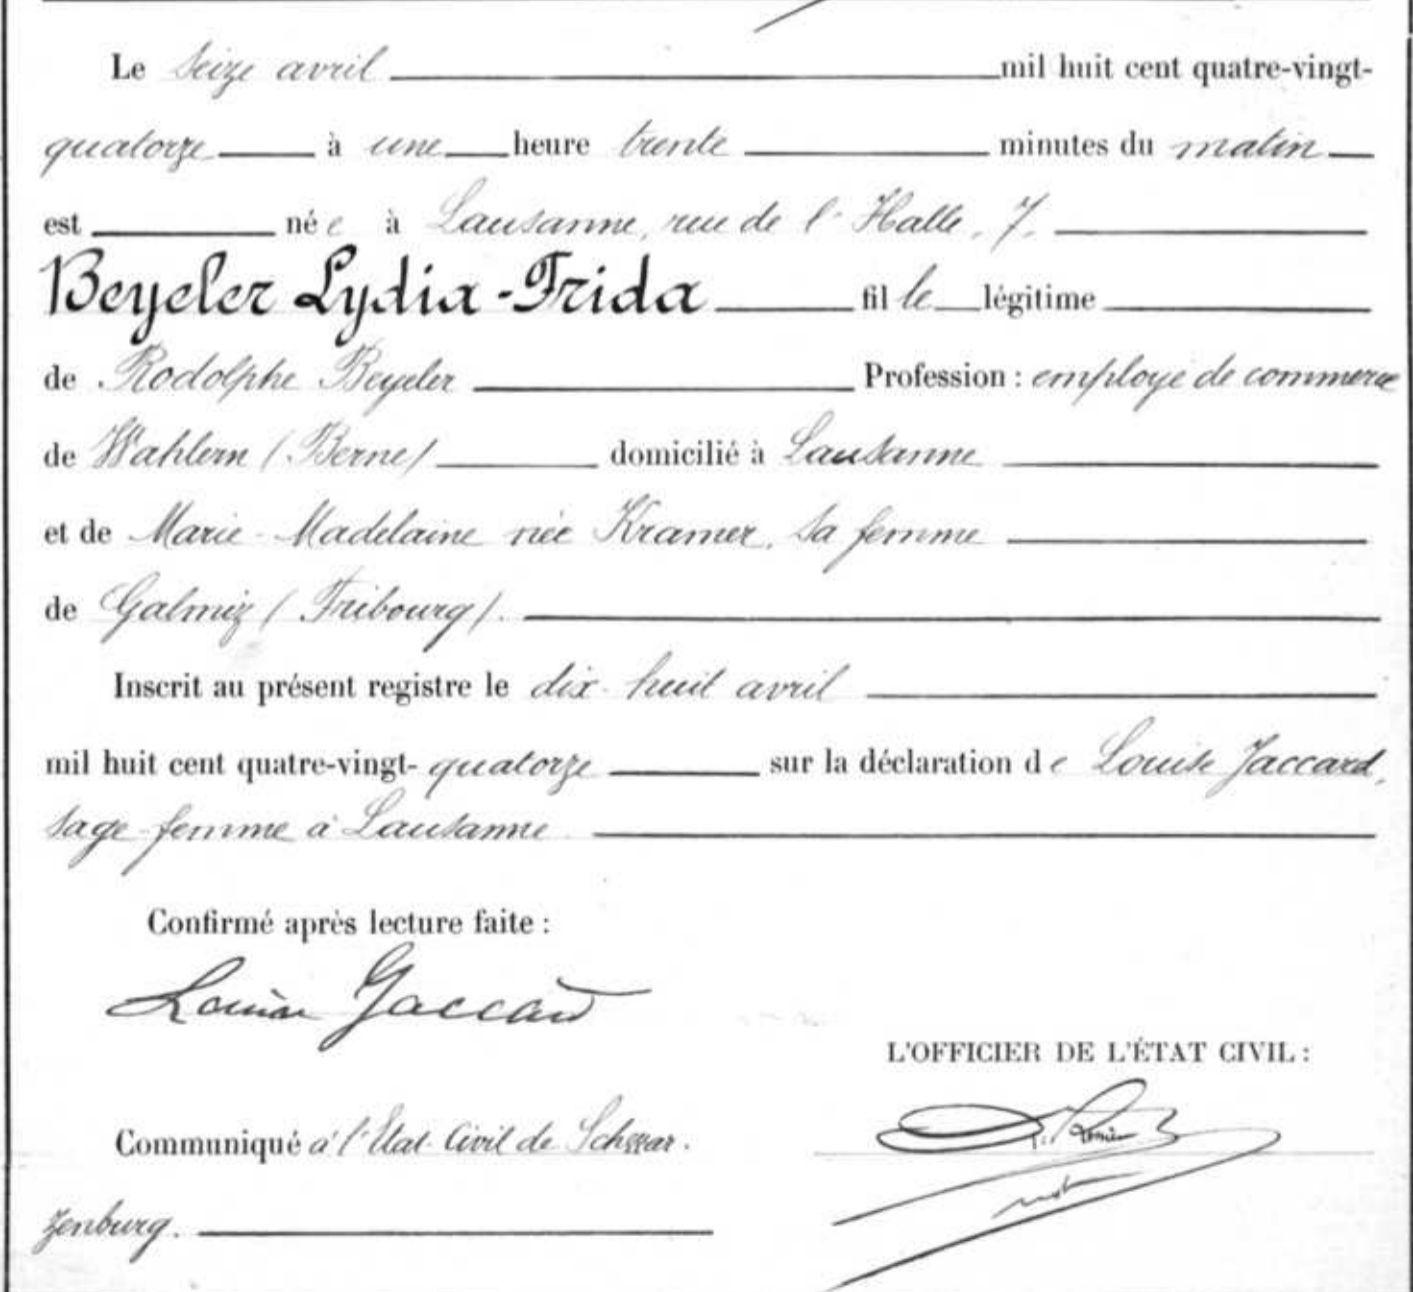 Le Seize avril mil huit cent quatre-vingt-
quatorze à une heure trente minutes du matin
est née à Lausanne, rue de l'Halle, 7.
Beyeler Lydia-Frida fille légitime
de Rodolphe Beyeler Profession : employé de commerce
de Wahlern (Berne) domicilié à Lausanne
et de Marie-Madelaine née Kramer, sa femme
de Galmiz (Fribourg).
Inscrit au présent registre le dix-huit avril
mil huit cent quatre-vingt-quatorze sur la déclaration de Louise Jaccard,
sage-femme à Lausanne
Confirmé après lecture faite :
Louise Jaccard
L'OFFICIER DE L'ÉTAT CIVIL :
Communiqué à l'Etat-Civil de Schwar-
zenburg.